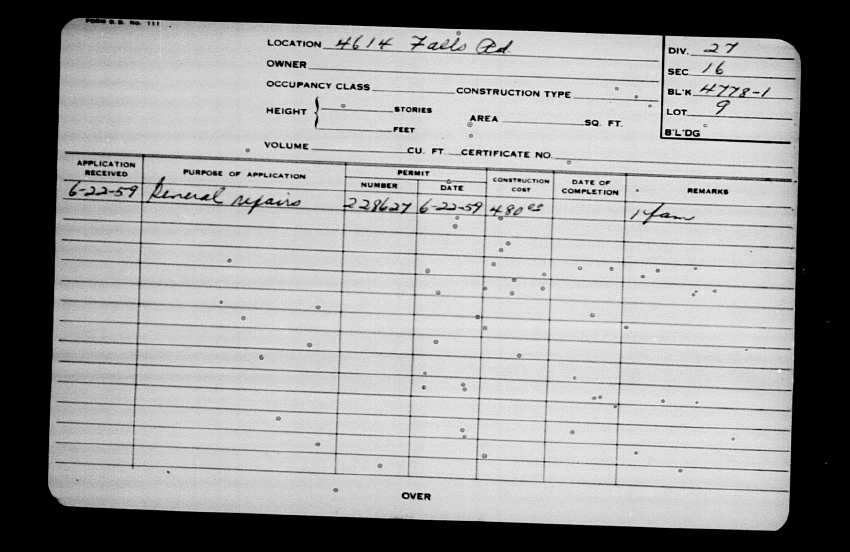 FORM B. B. No. 111
LOCATION 4614 Falls Rd.
OWNER
OCCUPANCY CLASS CONSTRUCTION TYPE
HEIGHT { STORIES
FEET
AREA SQ. FT.
VOLUME CU. FT. CERTIFICATE NO.
DIV. 27
SEC. 16
BL'K 4778-1
LOT 9
B'L'DG
APPLICATION RECEIVED PURPOSE OF APPLICATION PERMIT NUMBER DATE CONSTRUCTION COST DATE OF COMPLETION REMARKS
6-22-59 General repairs 228627 6-22-59 480 1 fam
OVER